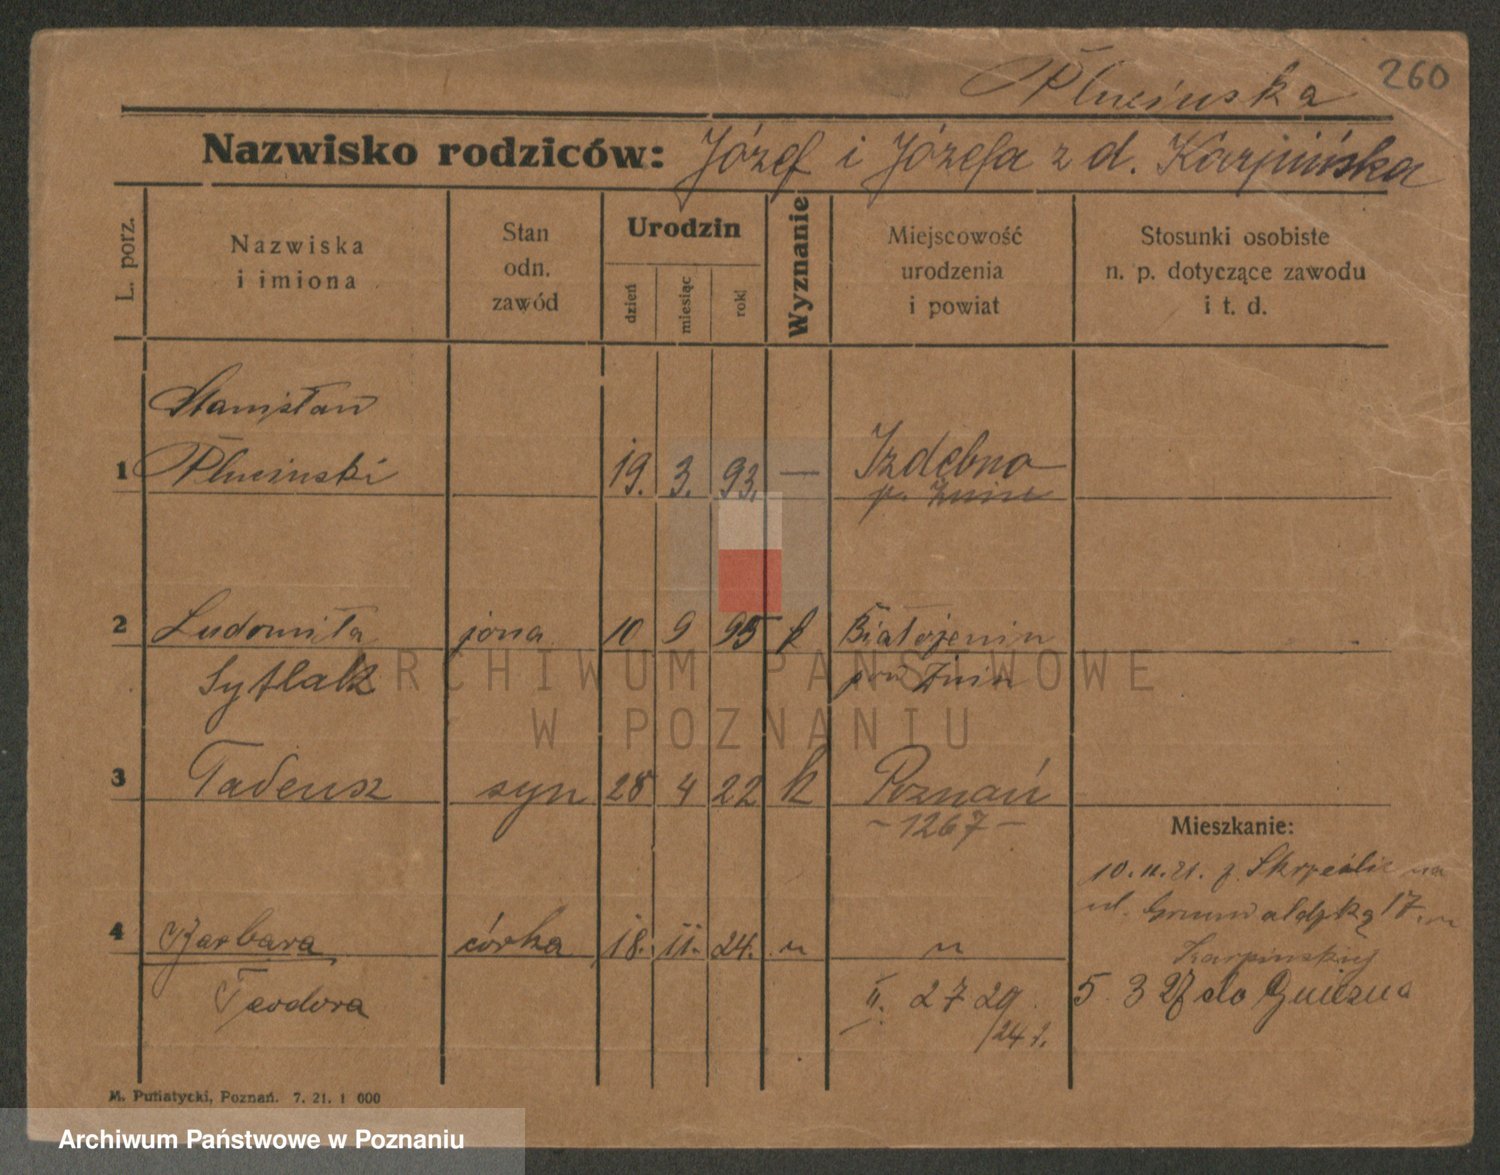 260
Plucińska
Nazwisko rodziców: Józef i Józefa z d. Karpińska
L. porz.
Nazwiska
i imiona
Stan
odn.
zawód
Urodzin
dzień
miesiąc
rok
Wyznanie
Miejscowość
urodzenia
i powiat
Stosunki osobiste
n. p. dotyczące zawodu
i t. d.
Stanisław
1 Pluciński 19. 3. 93. — Izdebno
2 Ludomiła żona 10 9 95 k Białożewin
Sytlak pow Żnin
3 Tadeusz syn 28 4 22 k Poznań
- 1267 -
Mieszkanie:
10. 11. 21. z
ul. Grunwaldzką 17.
4 Barbara córka 18. II. 24. " "
Karpińskiej
Teodora II. 27 29 5. 3 27 do Gniezna
/24 r.
M. Putiatycki, Poznań. 7. 21. 1 000
ARCHIWUM PAŃSTWOWE
W POZNANIU
Archiwum Państwowe w Poznaniu